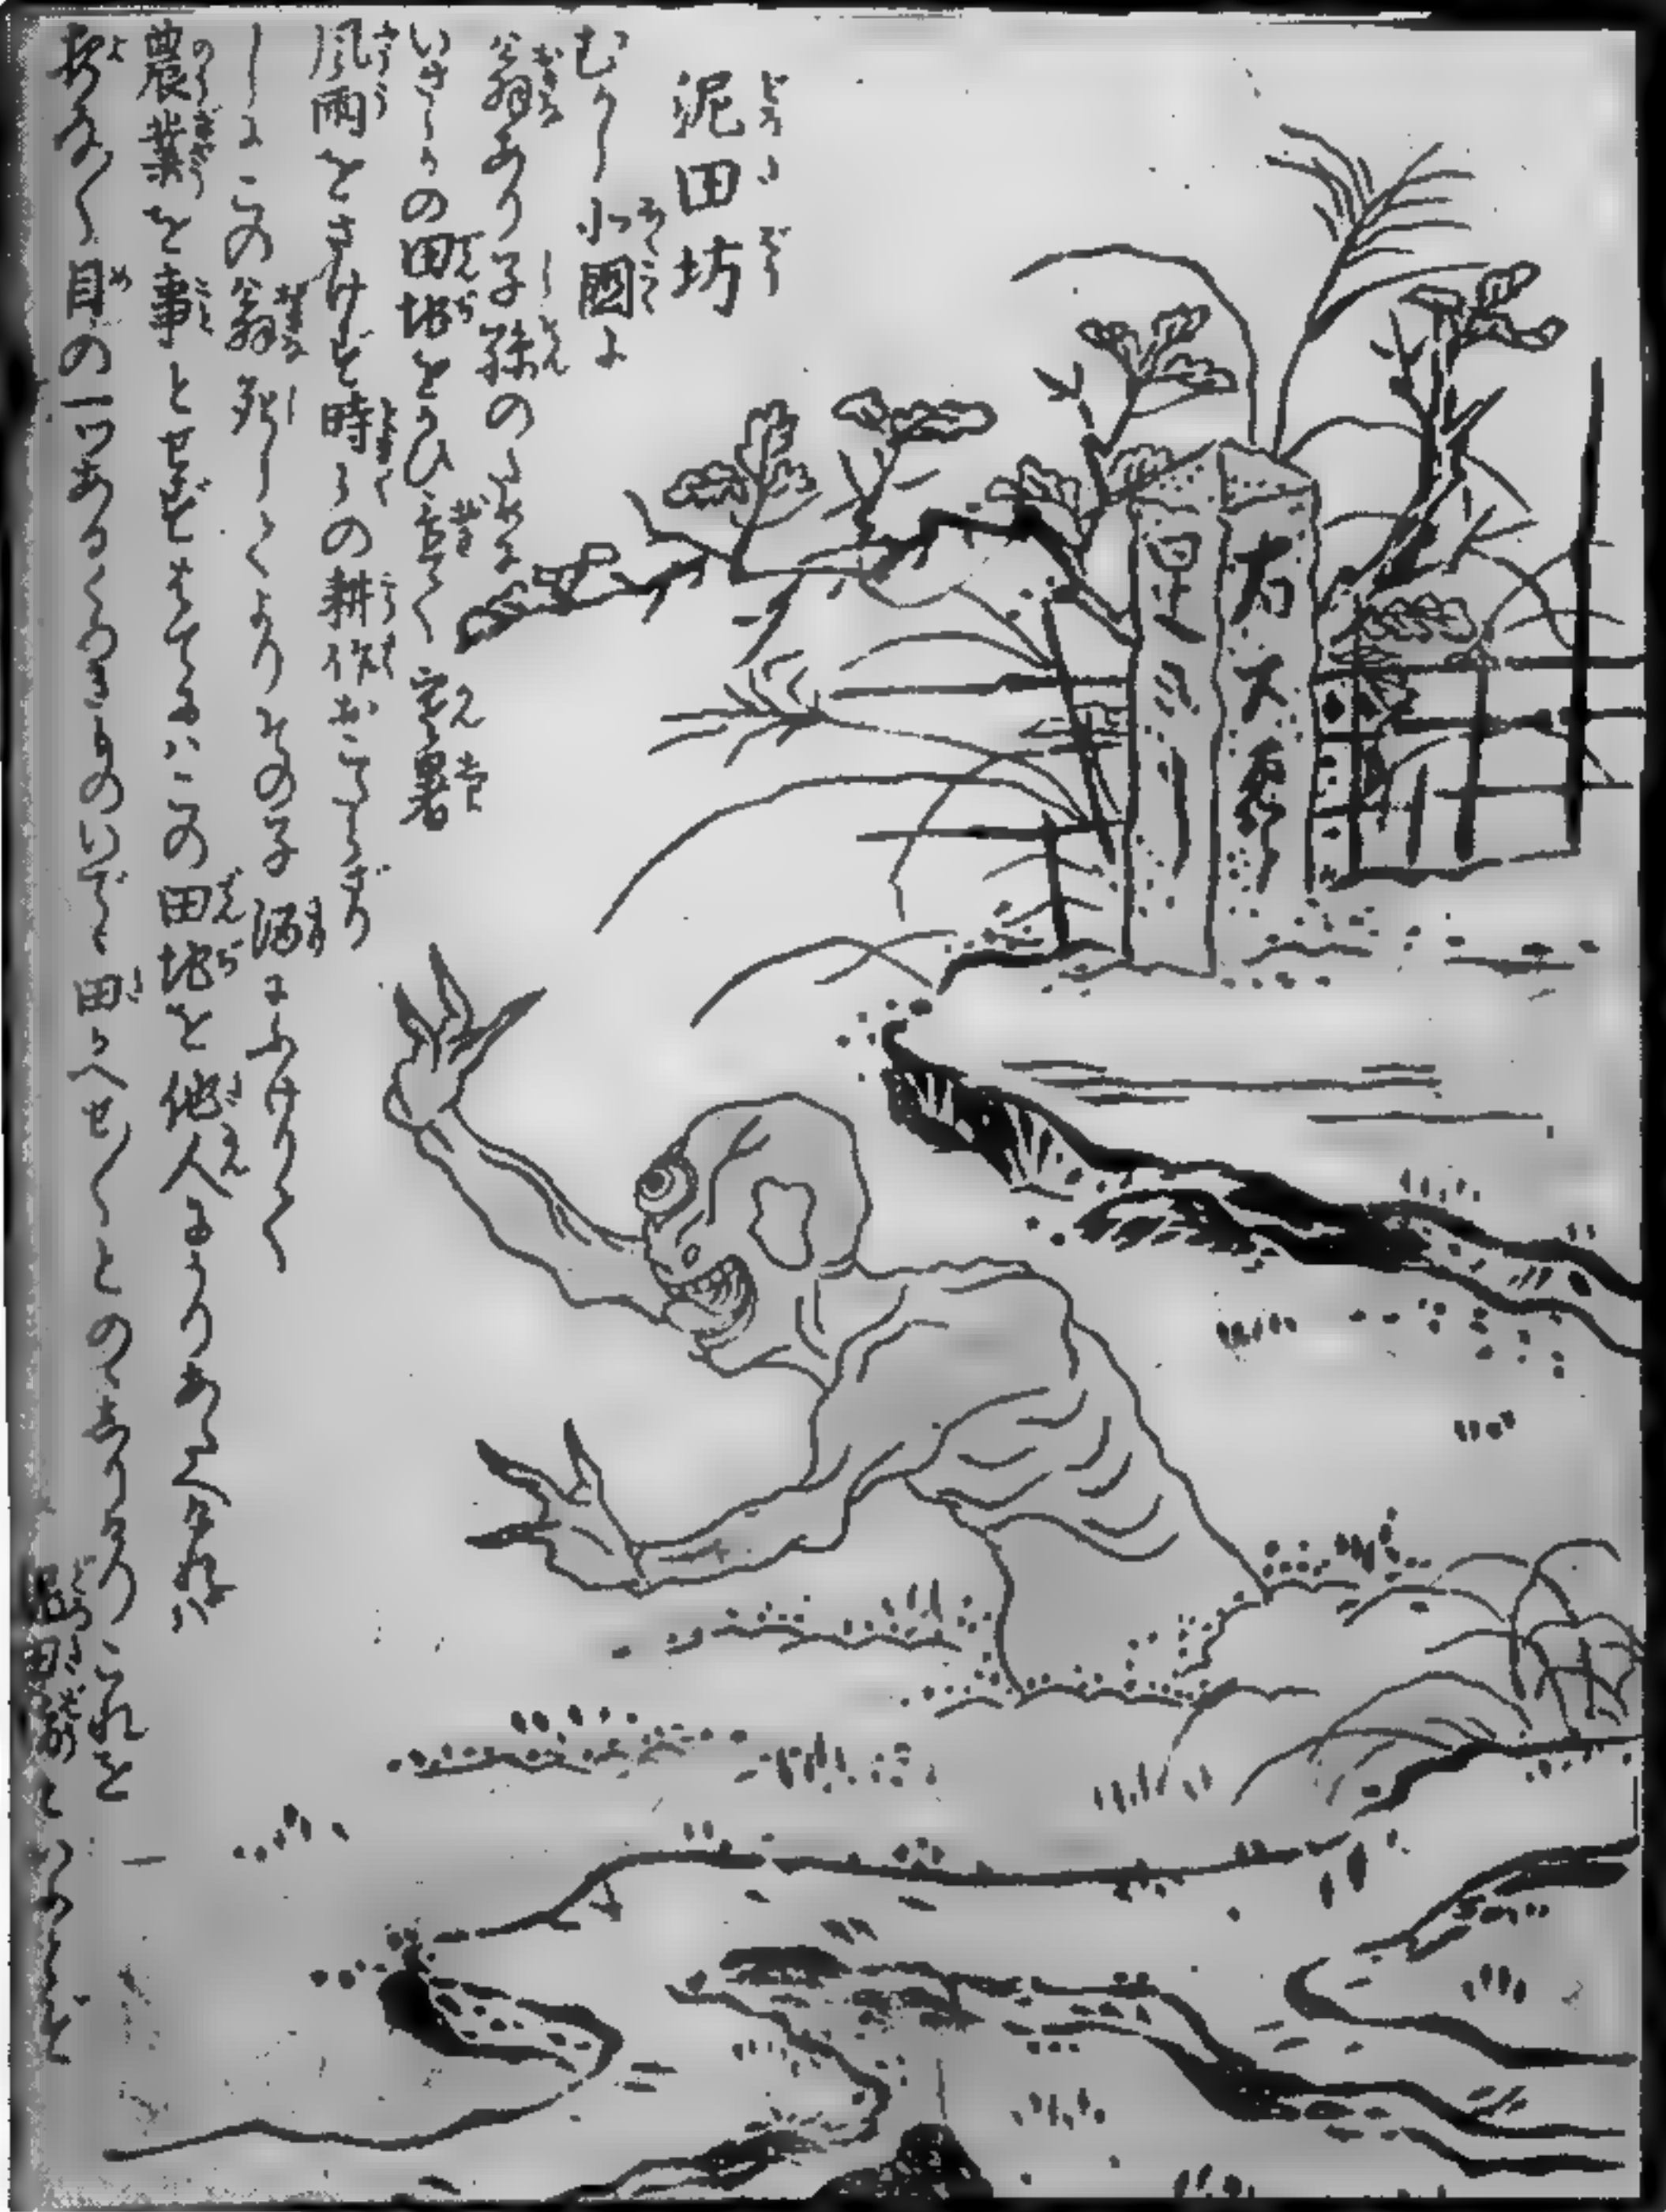 泥田坊
むかし北國に
翁あり子孫のために
いさゝかの田地をかひ置て寒暑
風雨をさけず時々の耕作おこたらざり
しにこの翁死してよりその子酒にふけりて
農業を事とせずはてにはこの田地を他人にうりあたへければ
夜な〱目の一つあるくろきものいでゝ田かへせ〱とのゝしりけりこれを
泥田坊といふとぞ